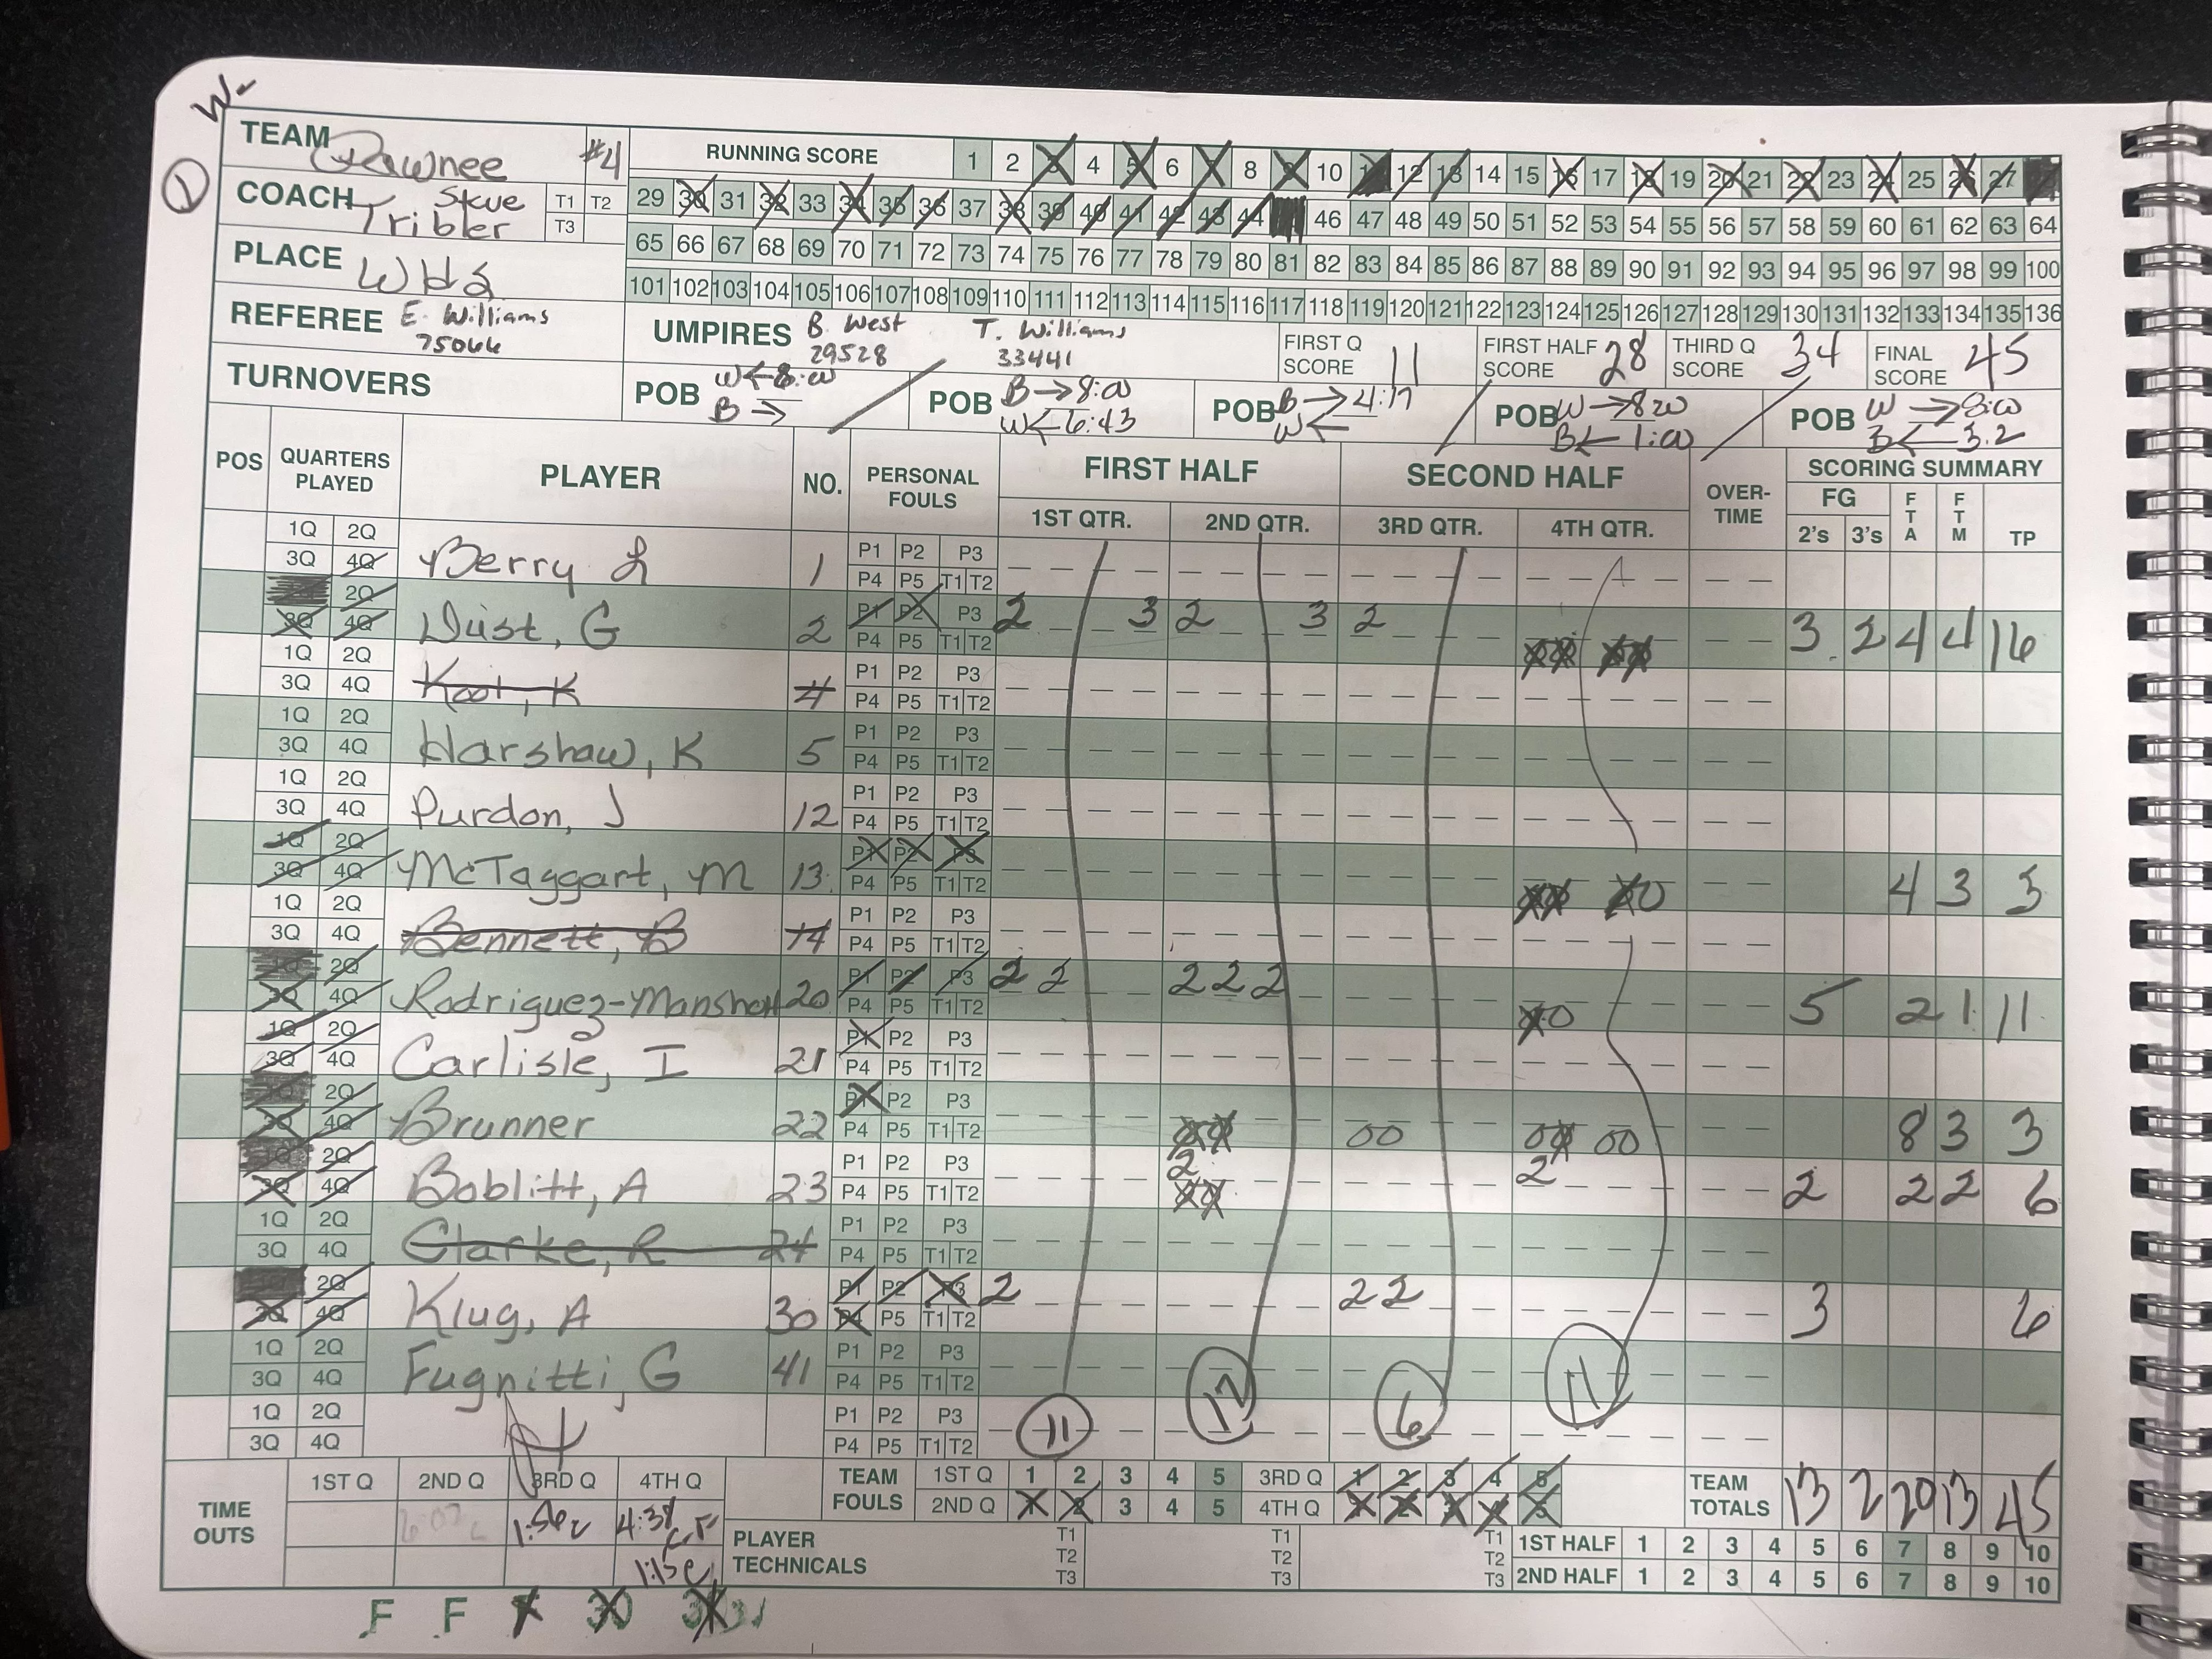 W-
1
TEAM Pawnee #4
RUNNING SCORE 1 2 3 4 5 6 7 8 9 10 11 12 13 14 15 16 17 18 19 20 21 22 23 24 25 26 27
COACH Steve Tribler T1 T2 T3
29 30 31 32 33 34 35 36 37 38 39 40 41 42 43 44 46 47 48 49 50 51 52 53 54 55 56 57 58 59 60 61 62 63 64
65 66 67 68 69 70 71 72 73 74 75 76 77 78 79 80 81 82 83 84 85 86 87 88 89 90 91 92 93 94 95 96 97 98 99 100
PLACE WHS
101 102 103 104 105 106 107 108 109 110 111 112 113 114 115 116 117 118 119 120 121 122 123 124 125 126 127 128 129 130 131 132 133 134 135 136
REFEREE E. Williams 75066
UMPIRES B. West 29528 T. Williams 33441
FIRST Q SCORE 11 FIRST HALF SCORE 28 THIRD Q SCORE 34 FINAL SCORE 45
TURNOVERS
POB W ← 8:00 B →
POB B → 8:00 W ← 6:43
POB B → 4:17 W ←
POB W → 8:00 B ← 1:00
POB W → 8:00 B ← 3.2
POS QUARTERS PLAYED PLAYER NO. PERSONAL FOULS FIRST HALF SECOND HALF OVER-TIME SCORING SUMMARY
1ST QTR. 2ND QTR. 3RD QTR. 4TH QTR. FG 2's 3's FTA FTM TP
1Q 2Q P1 P2 P3
3Q 4Q Berry L 1 P4 P5 T1 T2
2Q P1 P2 P3 2 3 2 3 2
3Q 4Q Dust, G 2 P4 P5 T1 T2 3 2 4 4 16
1Q 2Q P1 P2 P3
3Q 4Q Koot, K 4 P4 P5 T1 T2
1Q 2Q P1 P2 P3
3Q 4Q Harshaw, K 5 P4 P5 T1 T2
1Q 2Q P1 P2 P3
3Q 4Q Purdon, J 12 P4 P5 T1 T2
1Q 2Q P1 P2 P3
3Q 4Q McTaggart, M 13 P4 P5 T1 T2 4 3 3
1Q 2Q P1 P2 P3
3Q 4Q Bennett, B 14 P4 P5 T1 T2
2Q P1 P2 P3 2 2 2 2 2
3Q 4Q 20 P4 P5 T1 T2 5 2 1 11
1Q 2Q P1 P2 P3
3Q 4Q Carlisle, I 21 P4 P5 T1 T2
2Q P1 P2 P3
3Q 4Q Brunner 22 P4 P5 T1 T2 00 00 8 3 3
2Q P1 P2 P3 2 2
3Q 4Q Boblitt, A 23 P4 P5 T1 T2 2 2 2 6
1Q 2Q P1 P2 P3
3Q 4Q Clarke, R 24 P4 P5 T1 T2
2Q P1 P2 P3 2 2 2
3Q 4Q Klug, A 30 P4 P5 T1 T2 3 6
1Q 2Q P1 P2 P3
3Q 4Q Fugnitti, G 41 P4 P5 T1 T2
1Q 2Q P1 P2 P3
3Q 4Q P4 P5 T1 T2
11 17 6 11
TIME OUTS 1ST Q 2ND Q 3RD Q 4TH Q
4:38
TEAM FOULS 1ST Q 1 2 3 4 5 3RD Q 1 2 3 4 5
2ND Q 1 2 3 4 5 4TH Q 1 2 3 4 5
TEAM TOTALS 13 2 20 13 45
PLAYER TECHNICALS T1 T2 T3 T1 T2 T3 T1 T2 T3
1ST HALF 1 2 3 4 5 6 7 8 9 10
2ND HALF 1 2 3 4 5 6 7 8 9 10
F F 30